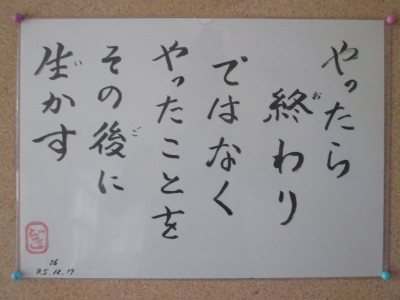 やったら
終わり
お
ではなく
やったことを
その後に
ご
生かす
い
26